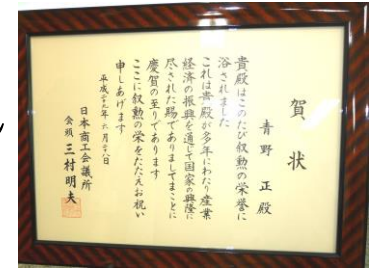 賀状
青野 正 殿
貴殿はこのたび叙勲の栄誉に
浴されました
これは貴殿が多年にわたり産業
経済の振興を通じて国家の興隆に
尽された賜でありましてまことに
慶賀の至りであります
ここに叙勲の栄をたたえお祝い
申しあげます
日本商工会議所
会頭 三村明夫